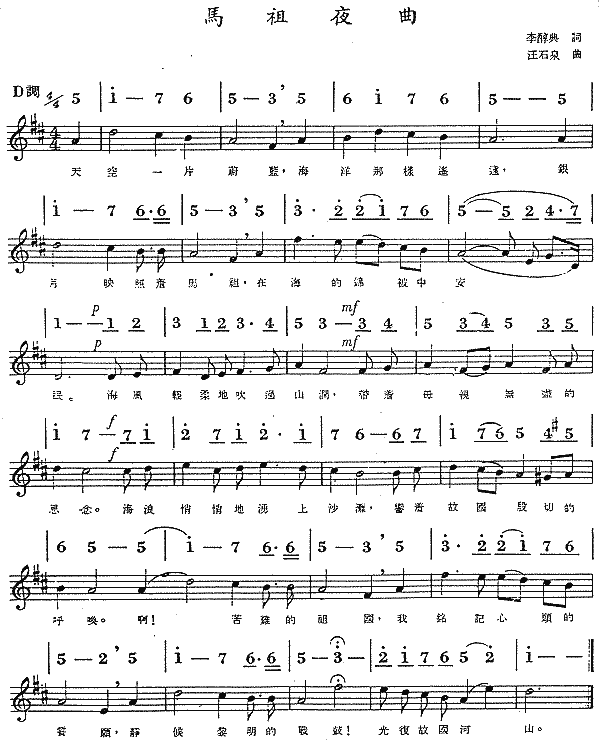 馬祖夜曲
李醇典 詞
汪石泉 曲
D調 4/4 5 | i — 7 6 | 5 — 3' 5 | 6 i 7 6 | 5 — — 5
天空一片蔚藍,海洋那樣遙遠,銀
i — 7 6·6 | 5 — 3' 5 | 3· 2 2 i 7 6 | 5 — 5 2 4·7
月映照着馬祖,在海的綿被中安
p
1 — — 1 2 | 3 1 2 3·4 | 5 3 — 3 4 | 5 3 4 3 5
p
mf
mf
海風輕柔地吹過山澗,帶着母親無盡的
f
i 7 — 7 i | 2 7 i 2·i | 7 6 — 6 7 | i 7 6 5 4# 5
f
思念。海浪悄悄地湧上沙灘,響着故國殷切的
6 5 — 5 | i — 7 6·6 | 5 — 3' 5 | 3· 2 2 i 7 6
呼喚。啊!苦難的祖國,我銘記心頭的
5 — 2' 5 | i — 7 6·6 | 5 — 3 — | 2 i 7 6 5 2 | i — —
宿願,靜候黎明的戰鼓!光復故國河山。